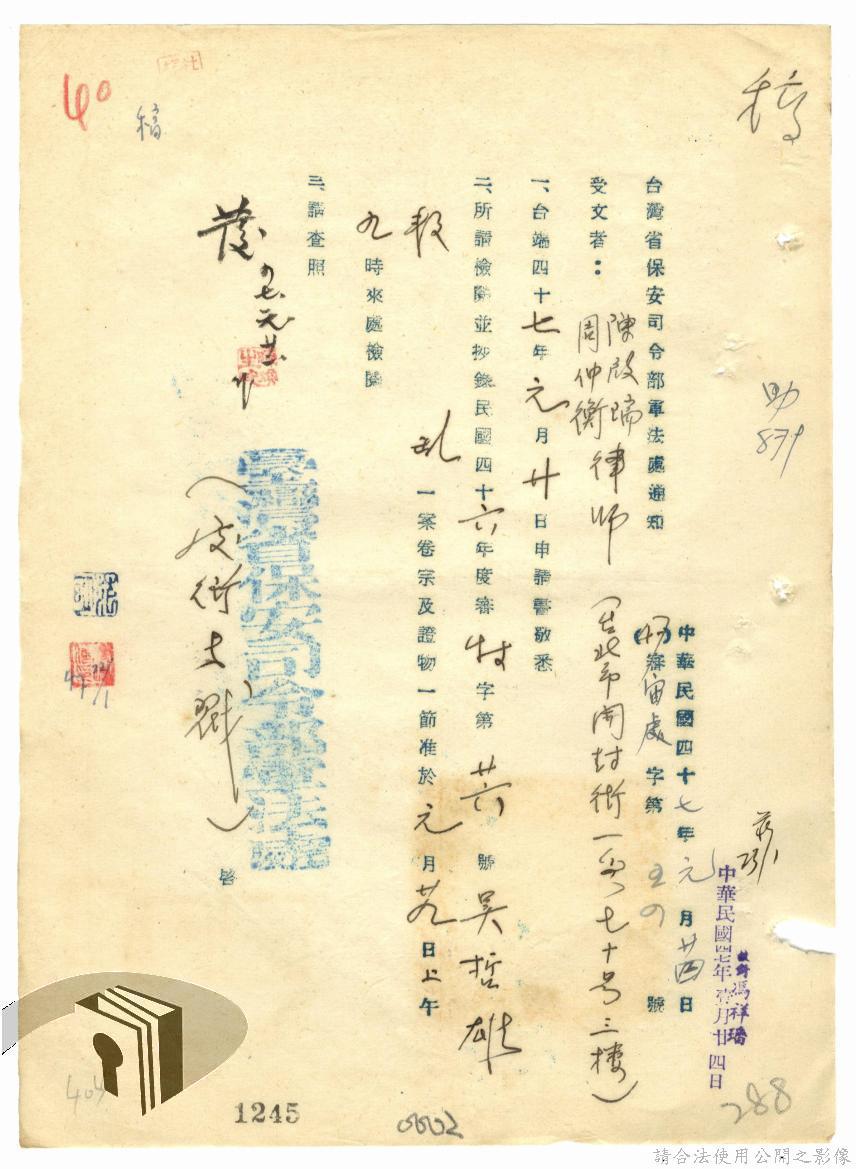 稿
助
839
台灣省保安司令部軍法處通知
中華民國四十七年元月廿四日
審宙處字第五四號
受文者：陳殿瑞律師
周仲衡
（台北市開封街一段七十号三樓）
一、台端四十七年元月廿日申請書敬悉
二、所請檢閱並抄錄民國四十六年度審特字第廿六號吳哲雄
叛亂一案卷宗及證物一節准於元月廿九日上午
九時來處檢閱
三、請查照
臺灣省保安司令部軍法處
啓
發
稿
40
中華民國四七年壹月廿四日
馮祥璠
404
1245
0002
288
請合法使用公開之影像